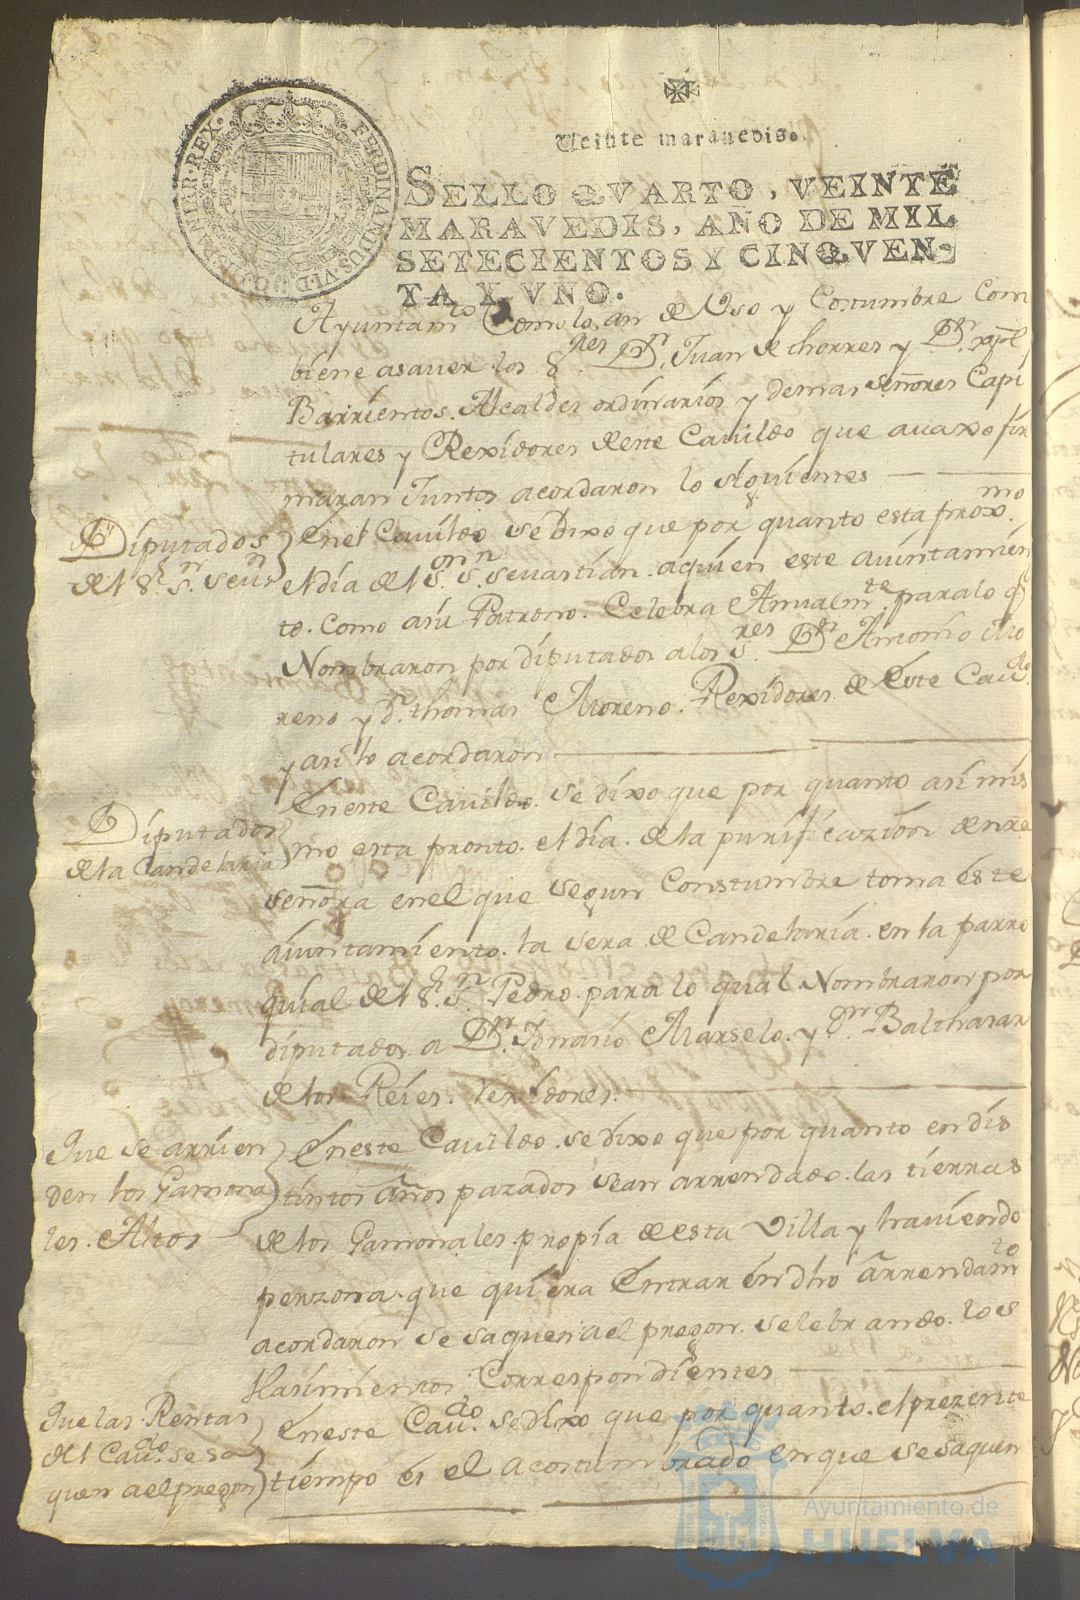 Veinte maravedis.
SELLO QVARTO, VEINTE
MARAVEDIS, AÑO DE MIL
SETECIENTOS Y CINQVEN-
TA Y VNO.
FERDINANDUS·VI·D·G· HISPANIAR·REX·
Ayuntamto Como lo an de Vso y Costumbre Com
biene asaver los Sres Dn. Juan de thorres y Dn. xpl
Barrientos. Alcaldes ordinarios y demas señores Capi
tulares y Rexidores deste Cavildo que avaxo fir
maran Juntos acordaron lo siguientes
Diputados
del Sr. Sn. Sevn
Enel Cavildo se dixo que por quanto esta prox.mo
el dia del Sor. Sn. Sevastian. aquien este aiuntamien
to. Como asu Patrono. Celebra Anualmte. paralo q
Nombraron por diputados alos Sres. Dn Antonio Mo
reno y Dn. thomas Moreno. Rexidores de Este Cavdo.
y asi lo acordaron
Diputados
de la Candelaria
Eneste Cavildo. se dixo que por quanto asi mis
mo esta pronto. el dia. de la purificazion denra
señora enel que segun Constumbre toma este
aiuntamiento. la sera de Candelaria. en la parro
quial del Sr. Sn Pedro. para lo qual Nombraron por
diputados a Dn. Ignasio Marselo. y Dn. Balthasar
de los Reies. rexidores.
Que se arrien
den los Gamona
les. Altos
Eneste Cavildo. se dixo que por quanto en dis
tintos años pazados sean arrendado. las tierras
de los Gamonales. propia de esta Villa y haviendo
perzona. que quiera Entrar en dho arrendamto
acordaron se saquen ael pregon. selebrando. los
Hasimientos Correspondientes
Que las Rentas
del Cavdo. se sa
quen ael pregon
Eneste Cavdo. se dixo que por quanto. el prezente
tiempo es el acostumbrado en que se saquen
Ayuntamiento de
HUELVA